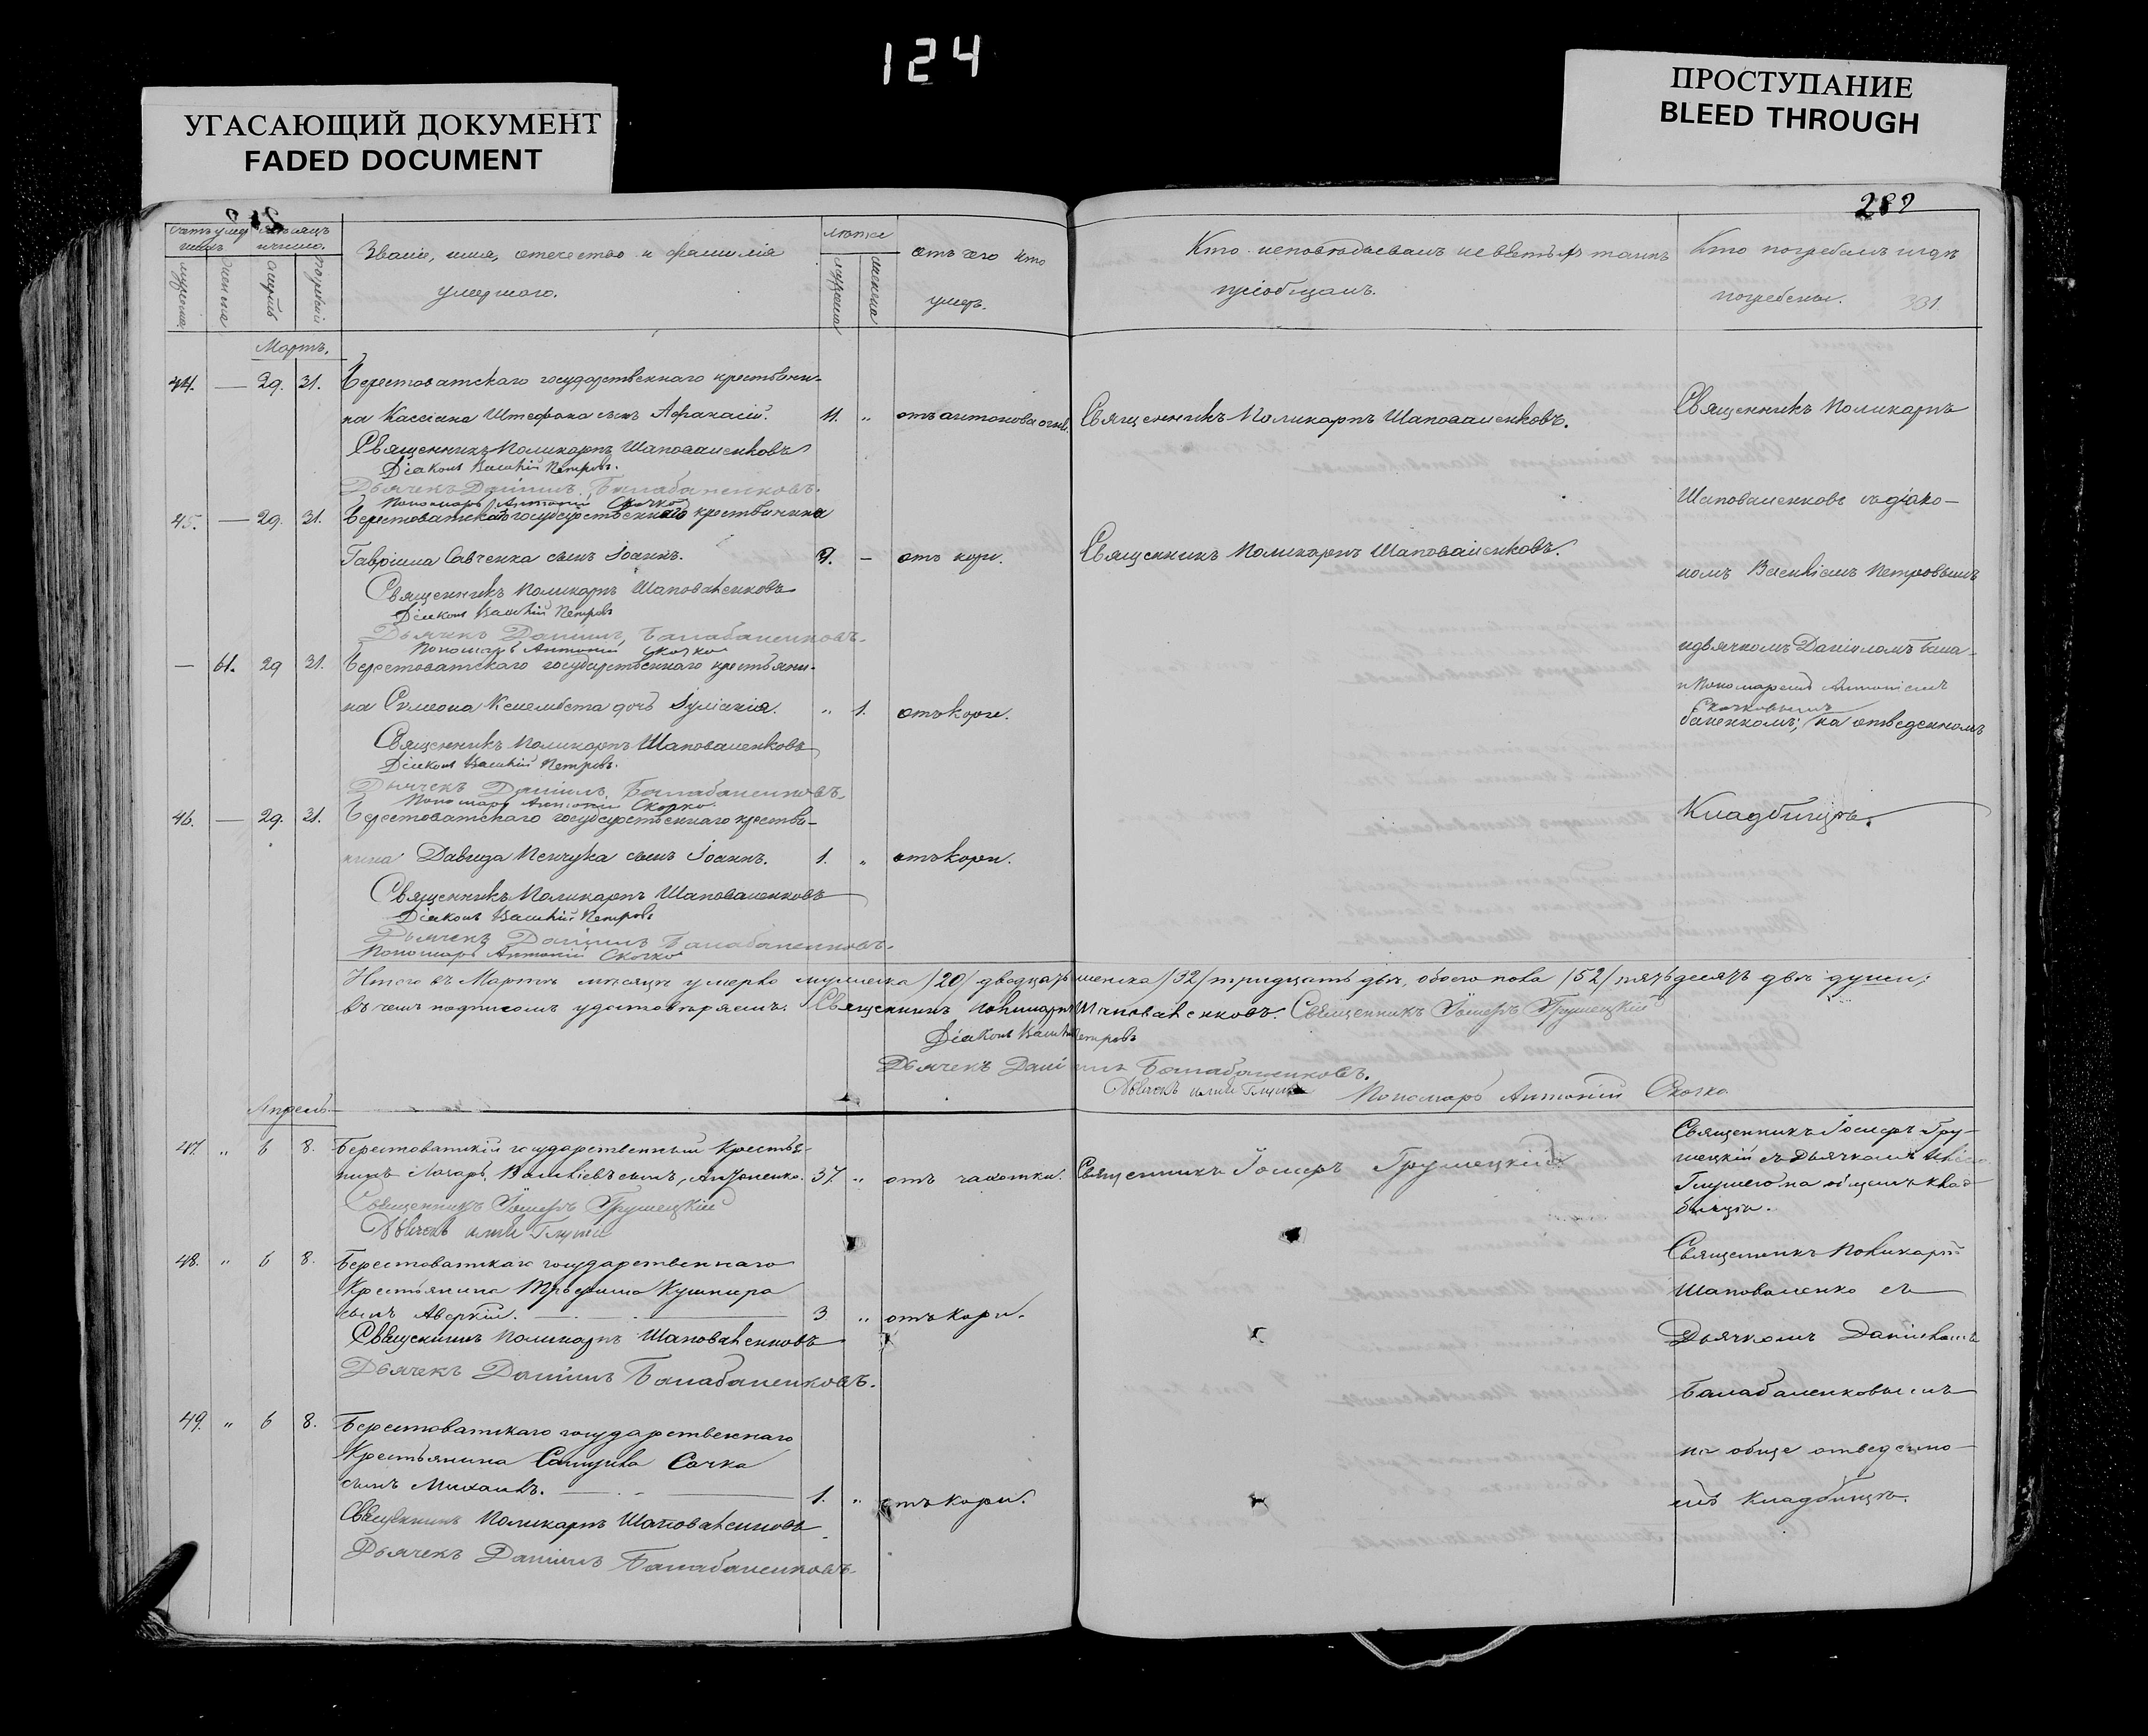 124
УГАСАЮЩИЙ ДОКУМЕНТ
FADED DOCUMENT
ПРОСТУПАНИЕ
BLEED THROUGH
282
331
Званіе, имя, отечество и фамилія
умершаго.
мужеска
женска
лѣта
отъ чего кто
умеръ.
Кто исповѣдывалъ и
пріобщалъ.
Кто погребалъ и гдѣ
погребены.
Мартъ.
44. — 29. 31. Берестоватскаго государственнаго крестьяни-
на Кассіана Штефана сынъ Афанасій. 11. „ отъ антонова огня. Священникъ Поликарпъ Шаповаленковъ. Священникъ Поликарпъ
Священникъ Поликарпъ Шаповаленковъ
Діаконъ Василій Петровъ.
Дьячекъ Даніилъ Балабаненковъ.
Пономарь Антоній Скочко
Шаповаленковъ съ діако-
45. — 29. 31. Берестоватскаго государственнаго крестьянина
Гавріила Савченка сынъ Іоаннъ. — отъ кори. Священникъ Поликарпъ Шаповаленковъ.
номъ Василіемъ Петровымъ
Священникъ Поликарпъ Шаповаленковъ
Діаконъ Василій Петровъ
Дьячекъ Даніилъ Балабаненковъ.
Пономарь Антоній Скочко
и дьячкомъ Даніиломъ Бала-
— 61. 29 31. Берестоватскаго государственнаго крестьяни-
и Пономаремъ Антоніемъ
Скочковымъ
на Симеона дочь Іуліанія. „ 1. отъ кори.
баненкомъ; на отведенномъ
Священникъ Поликарпъ Шаповаленковъ
Діаконъ Василій Петровъ.
Дьячекъ Даніилъ Балабаненковъ.
Пономарь Антоній Скочко
46. — 29. 31. Берестоватскаго государственнаго крестья-
Кладбищѣ.
нина Давида Пенчука сынъ Іоаннъ. 1. „ отъ кори.
Священникъ Поликарпъ Шаповаленковъ
Діаконъ Василій Петровъ
Дьячекъ Даніилъ Балабаненковъ.
Пономарь Антоній Скочко
Итого въ Мартѣ мѣсяцѣ умерло мужеска /20/ двадцать женска /32/ тридцать двѣ, обоего пола /52/ пятьдесятъ двѣ души;
въ чемъ подписомъ удостовѣряемъ. Священникъ Поликарпъ Шаповаленковъ. Священникъ Іосифъ Грушецкій
Діаконъ Василій Петровъ
Дьячекъ Даніилъ Балабаненковъ.
Дьячекъ Пономарь Антоній Скочко.
Апрель
47. „ 6 8. Берестоватскій государственный Крестья-
нинъ Лазарь, Василіевъ сынъ, Антоненко. 37. „ отъ чахотки. Священникъ Іосифъ Грушецкій
Священникъ Іосифъ Гру-
шецкій съ Дьячкомъ
на общемъ клад-
бищѣ.
Священникъ Іосифъ Грушецкій
Дьячекъ
48. „ 6 8. Берестоватскаго государственнаго
Крестьянина Трофима Кушнира
сынъ Аверкій. 3 „ отъ кори.
Священникъ Поликарпъ Шаповаленковъ
Дьячекъ Даніилъ Балабаненковъ.
Священникъ Поликарпъ
Шаповаленко съ
Дьячкомъ Даніиломъ
Балабаненковымъ
на обще отведено-
мъ Кладбищѣ.
49. „ 6 8. Берестоватскаго государственнаго
Крестьянина Самуила Сачка
сынъ Михаилъ. 1. „ отъ кори.
Священникъ Поликарпъ Шаповаленковъ
Дьячекъ Даніилъ Балабаненковъ.